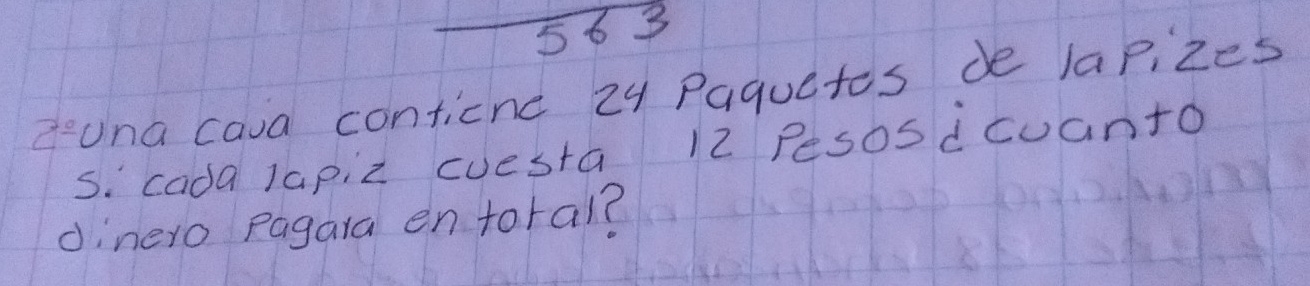 563
2º una caja contiene 24 Paquetes de lapizes
si cada lapiz cuesta 12 Pesos ¿cuanto
dinero Pagara en total?